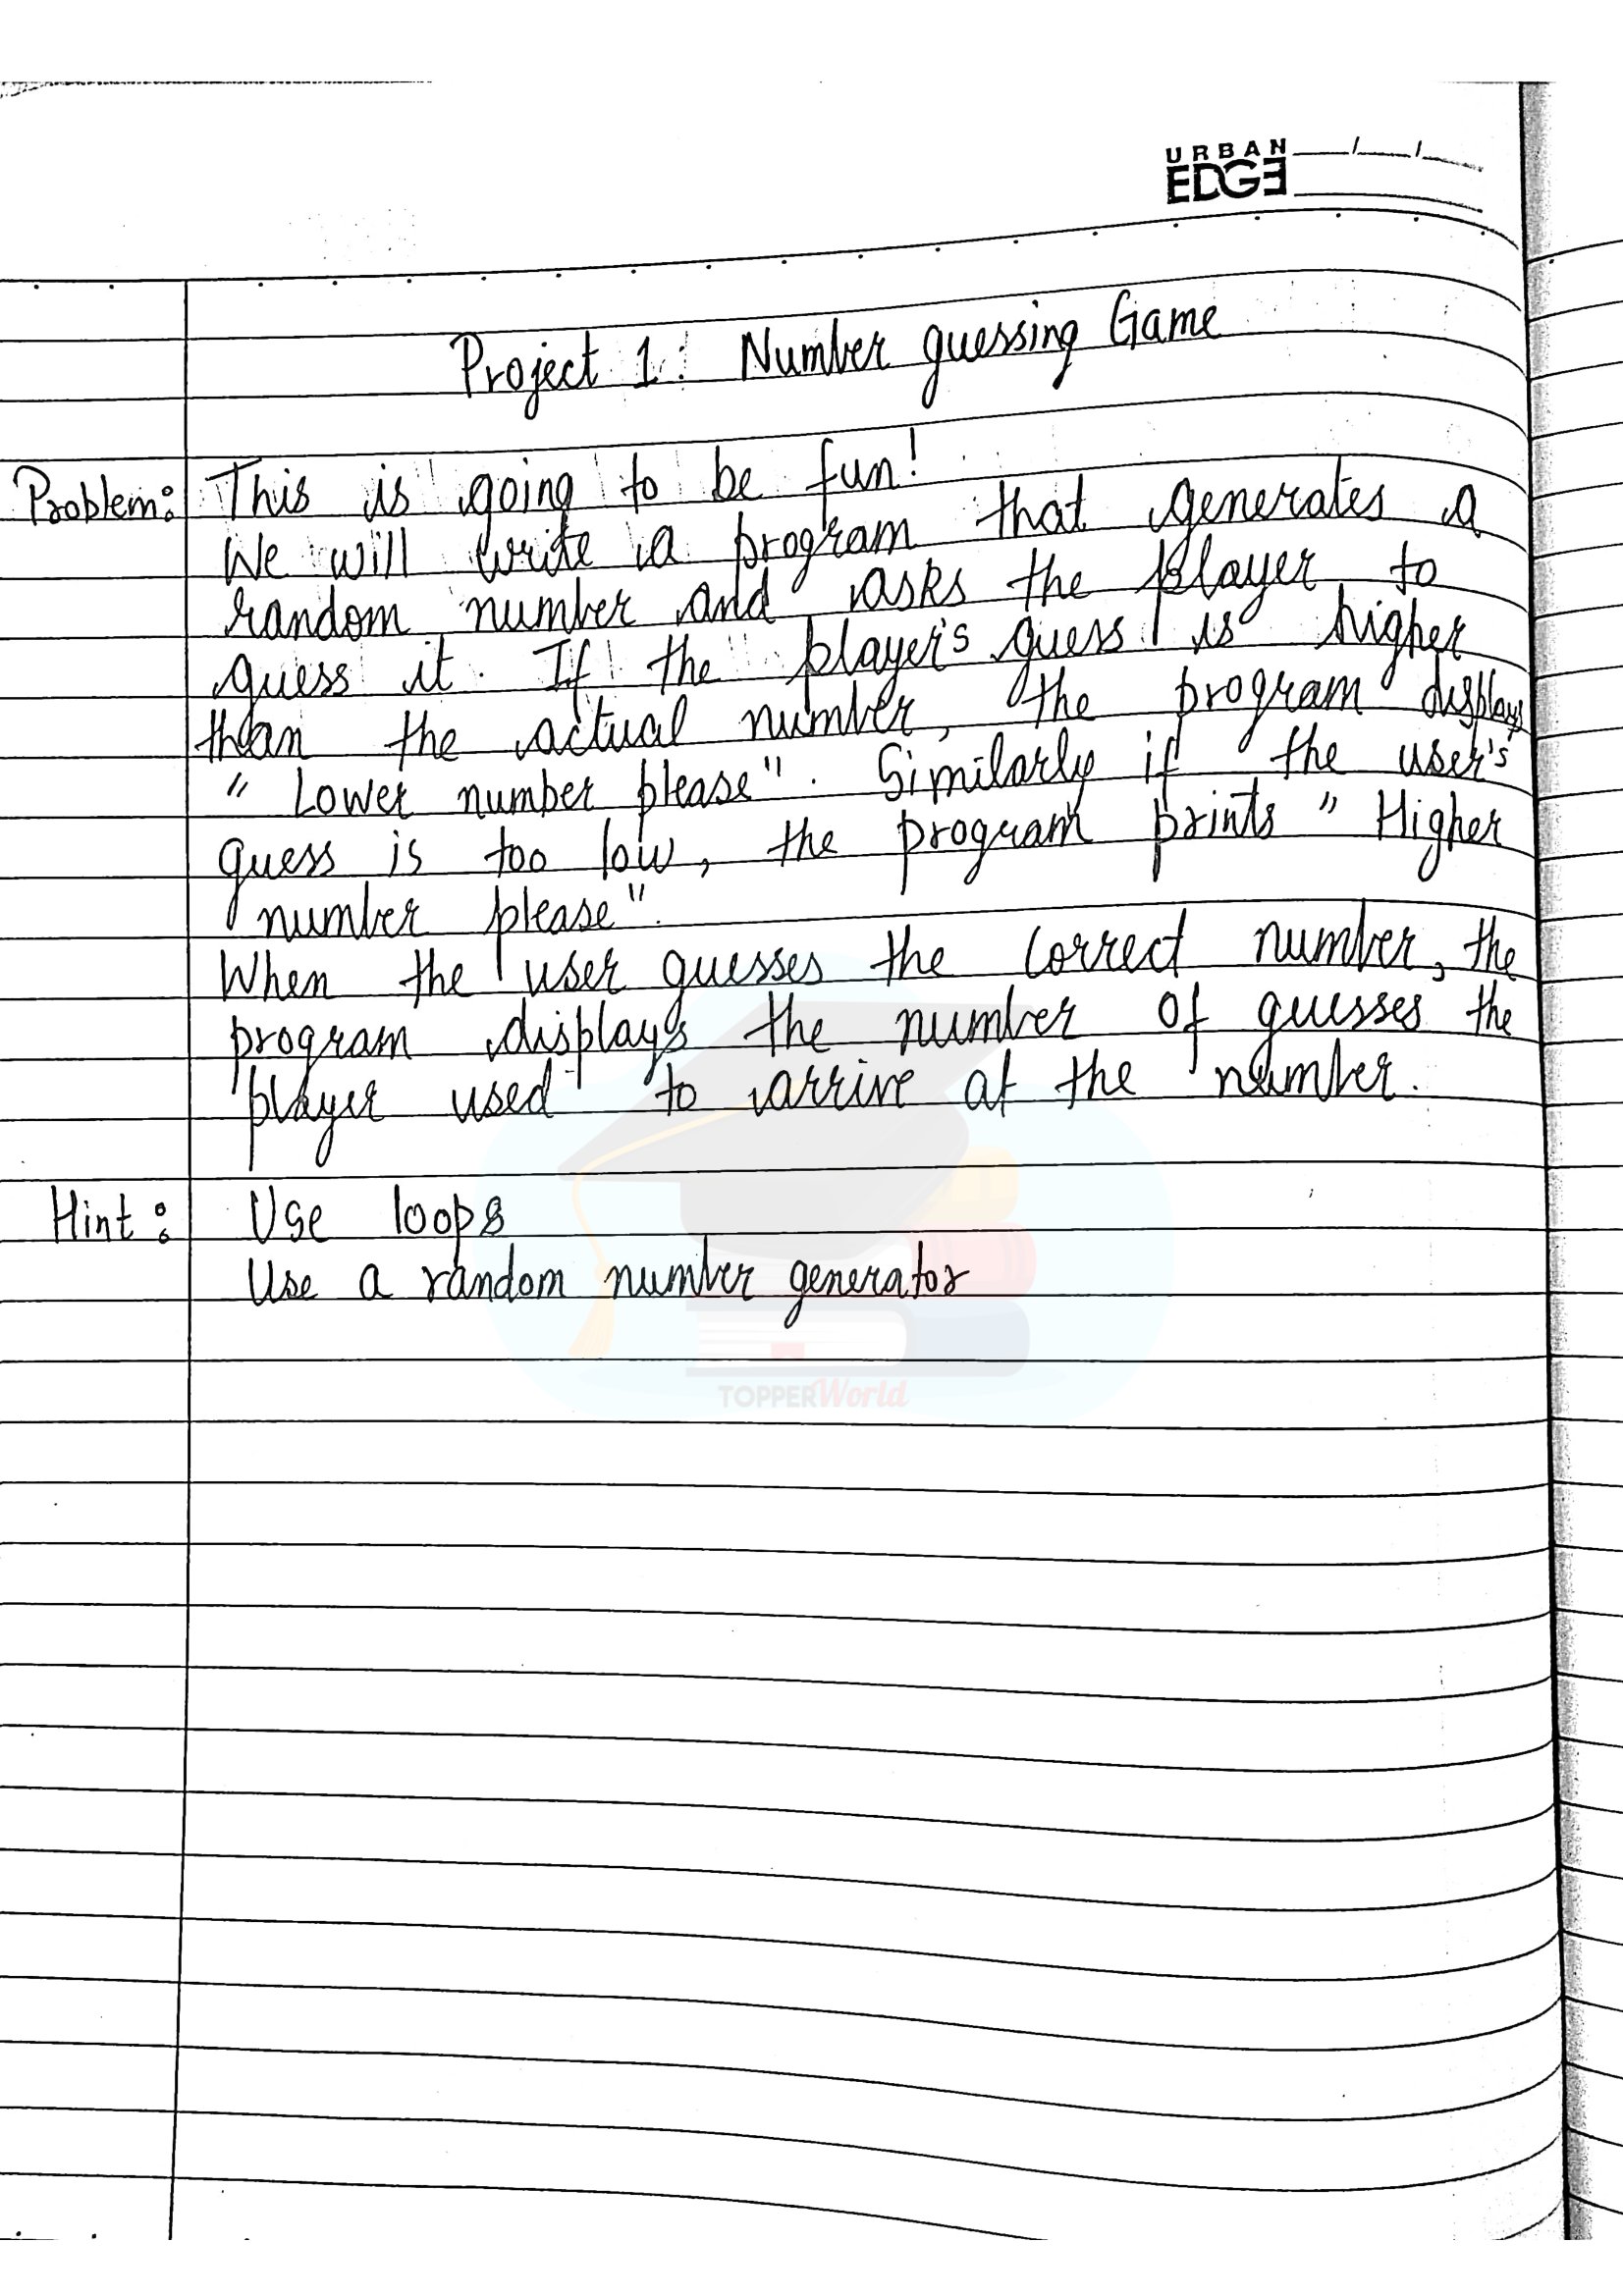 URBAN
EDGE
Project 1: Number guessing Game
Problem: This is going to be fun!
We will write a program that generates a
random number and asks the player to
guess it. If the player's guess is higher
than the actual number, the program displays
"Lower number please". Similarly if the user's
guess is too low, the program prints "Higher
number please".
When the user guesses the correct number, the
program displays the number of guesses the
player used to arrive at the number.
Hint: Use loops
Use a random number generator
TOPPERWorld